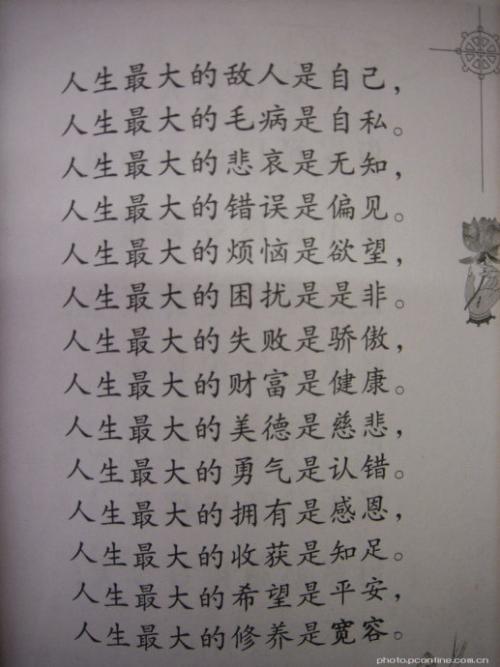 人生最大的敌人是自己，
人生最大的毛病是自私。
人生最大的悲哀是无知，
人生最大的错误是偏见。
人生最大的烦恼是欲望，
人生最大的困扰是是非。
人生最大的失败是骄傲，
人生最大的财富是健康。
人生最大的美德是慈悲，
人生最大的勇气是认错。
人生最大的拥有是感恩，
人生最大的收获是知足。
人生最大的希望是平安，
人生最大的修养是宽容。
photo.pconline.com.cn